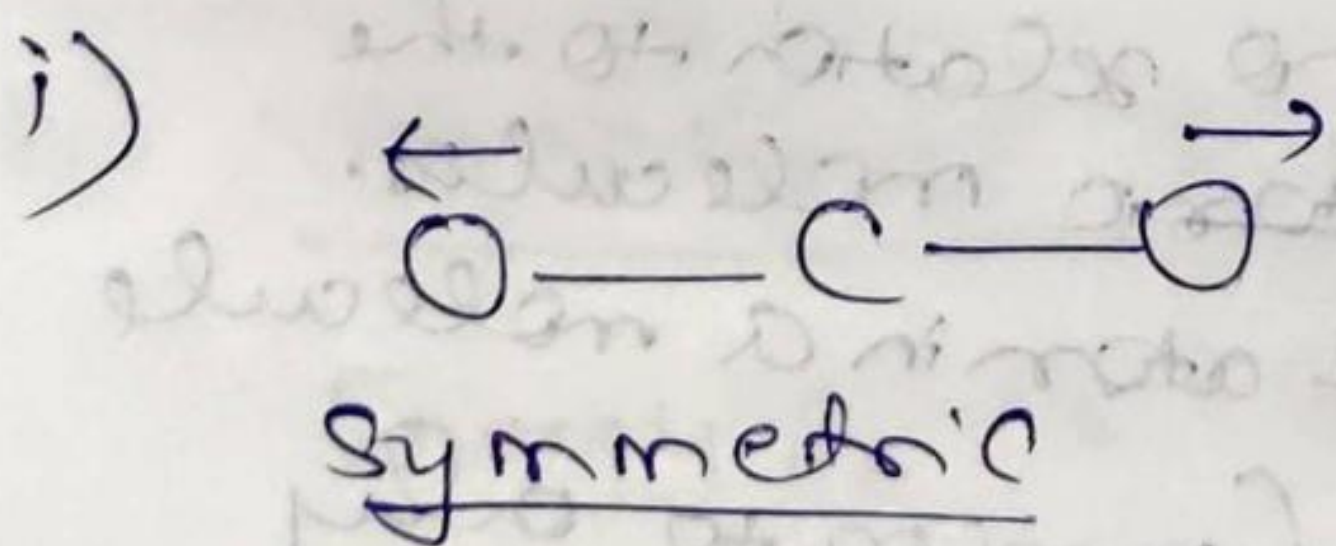 i)
O — C — O
Symmetric